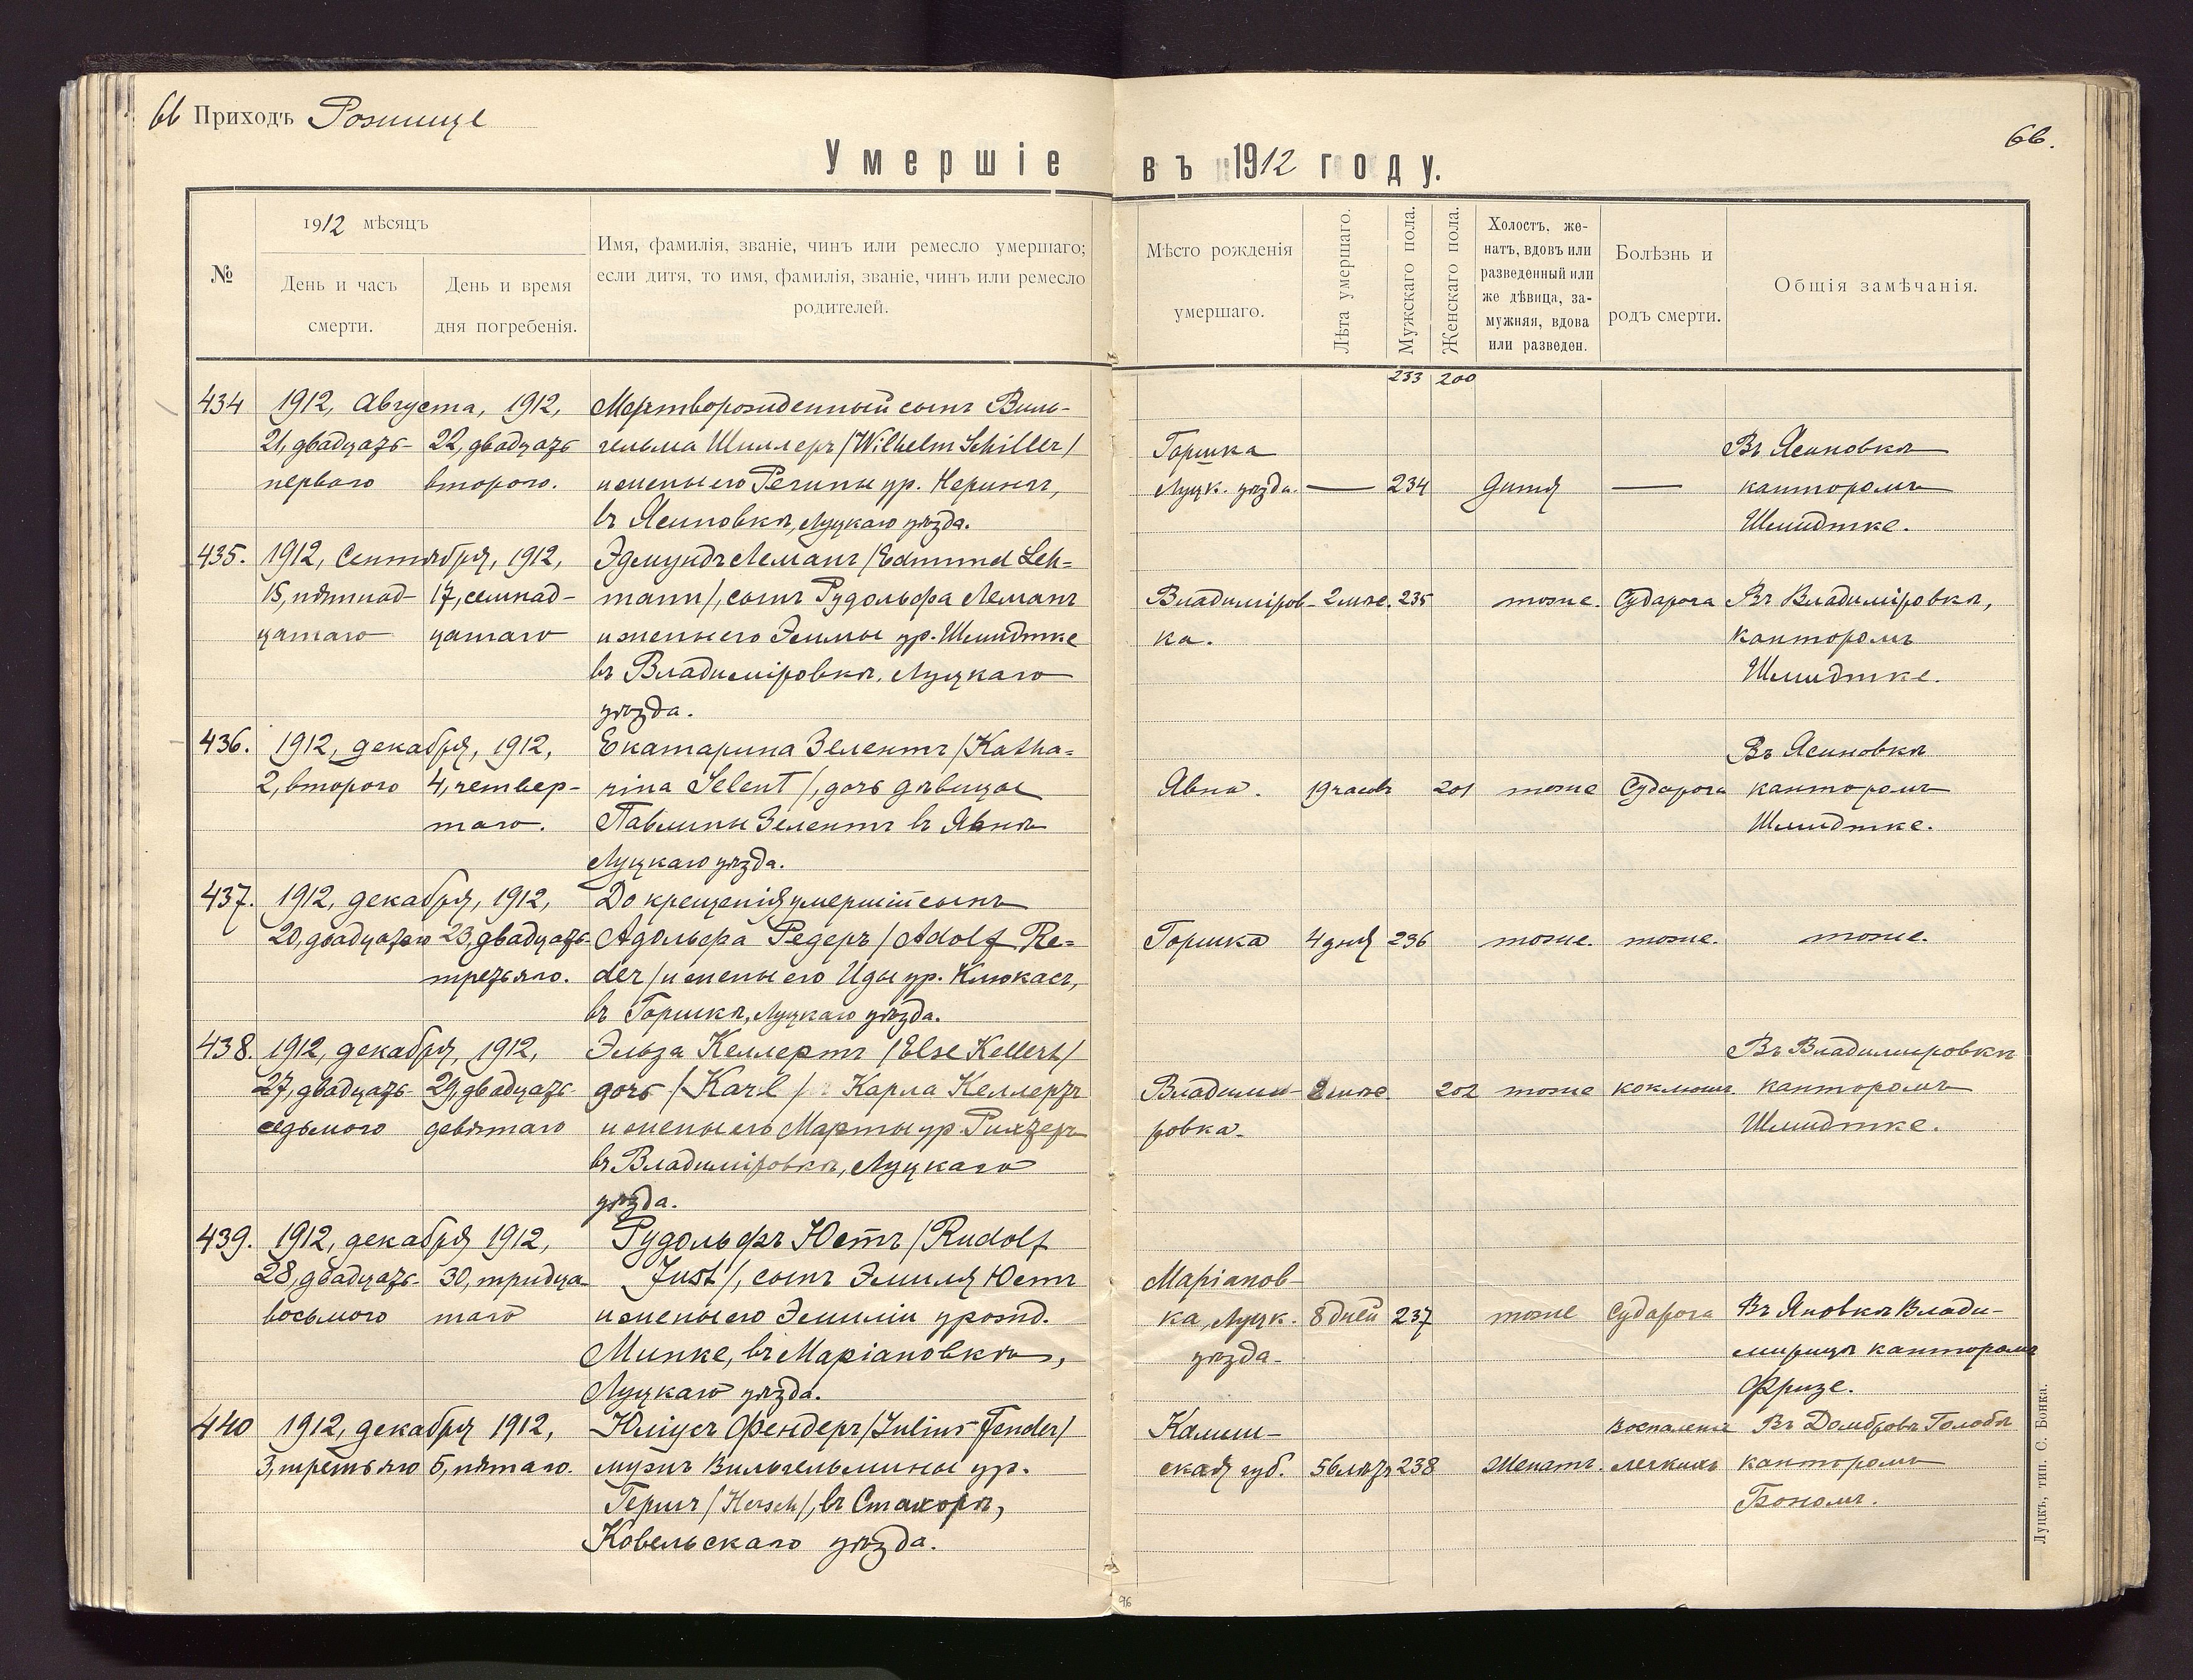 66 Приходъ Рожище
66.
Умершіе въ 1912 году.
№
1912 мѣсяцъ
День и часъ смерти.
День и время дня погребенія.
Имя, фамилія, званіе, чинъ или ремесло умершаго;
если дитя, то имя, фамилія, званіе, чинъ или ремесло
родителей.
Мѣсто рожденія
умершаго.
Лѣта умершаго.
Мужскаго пола.
Женскаго пола.
Холостъ, же-
натъ, вдовъ или
разведенный или
же дѣвица, за-
мужняя, вдова
или разведен.
Болѣзнь и
родъ смерти.
Общія замѣчанія.
233 200
434 1912, Августа, 1912, Мертворожденный сынъ Виль-
21, двадцать- 22, двадцать гельма Шиллеръ /Wilhelm Schiller/ Горшка Въ Ясиновкѣ
перваго второго. и жены его Регины ур. Нерингъ, Луцк. уѣзда. — 234 дитя — канторомъ
въ Ясиновкѣ, Луцкаго уѣзда. Шмидтке.
435. 1912, Сентября, 1912, Эдмундъ Леманъ /Edmund Leh=
15, пятнад- 17, семнад- mann/, сынъ Рудольфа Леманъ Владиміров- 2 мѣс. 235 тоже. Судорога Въ Владиміровкѣ,
цатаго цатаго и жены его Эммы ур. Шмидтке ка. канторомъ
въ Владиміровкѣ, Луцкаго Шмидтке.
уѣзда.
436. 1912, декабря, 1912, Екатарина Зелентъ /Katha= Въ Ясиновкѣ
2, второго 4, четвер- rina Selent/, дочь дѣвицы Явна. 19 часовъ 201 тоже Судорога канторомъ
таго. Павлины Зелентъ въ Явнѣ Шмидтке.
Луцкаго уѣзда.
437. 1912, декабря, 1912, До крещенія умершій сынъ
20, двадцатаго 23, двадцать Адольфа Редеръ /Adolf Re= Горшка 4 дня 236 тоже. тоже. тоже.
третьяго. der/ и жены его Иды ур. Клюкасъ,
въ Горшкѣ, Луцкаго уѣзда.
438. 1912, декабря, 1912, Эльза Келлертъ /Else Kellert/ Въ Владимировкѣ
27, двадцать- 29, двадцать- дочь /Karl/ Карла Келлертъ Владими- 2 мѣс. 202 тоже коклюшъ. канторомъ
седьмого девятаго и жены его Марты ур. Рихтеръ ровка. Шмидтке.
въ Владиміровкѣ, Луцкаго
уѣзда.
439. 1912, декабря 1912, Рудольфъ Юстъ /Rudolf
28, двадцать- 30, тридца- Just/, сынъ Эмиля Юстъ Маріанов-
восьмого таго и жены его Эмиліи урожд. ка, Луцк. 8 дней 237 тоже Судорога Въ Яновкѣ Влади-
Минке, въ Маріановкѣ, уѣзда. мирца канторомъ
Луцкаго уѣзда. Фризе.
440 1912, декабря 1912, Юліусъ Фендеръ /Julius Fender/ Калиш- Воспаленіе Въ Домбровѣ Голобы
3, третьяго 5, пятаго. мужъ Вильгельмины ур. ская губ. 56 лѣтъ 238 Женатъ. легкихъ канторомъ
Гершъ /Hersch/, въ Стахорѣ,
Ковельскаго уѣзда.
Луцкъ, тип. С. Бонка.
96